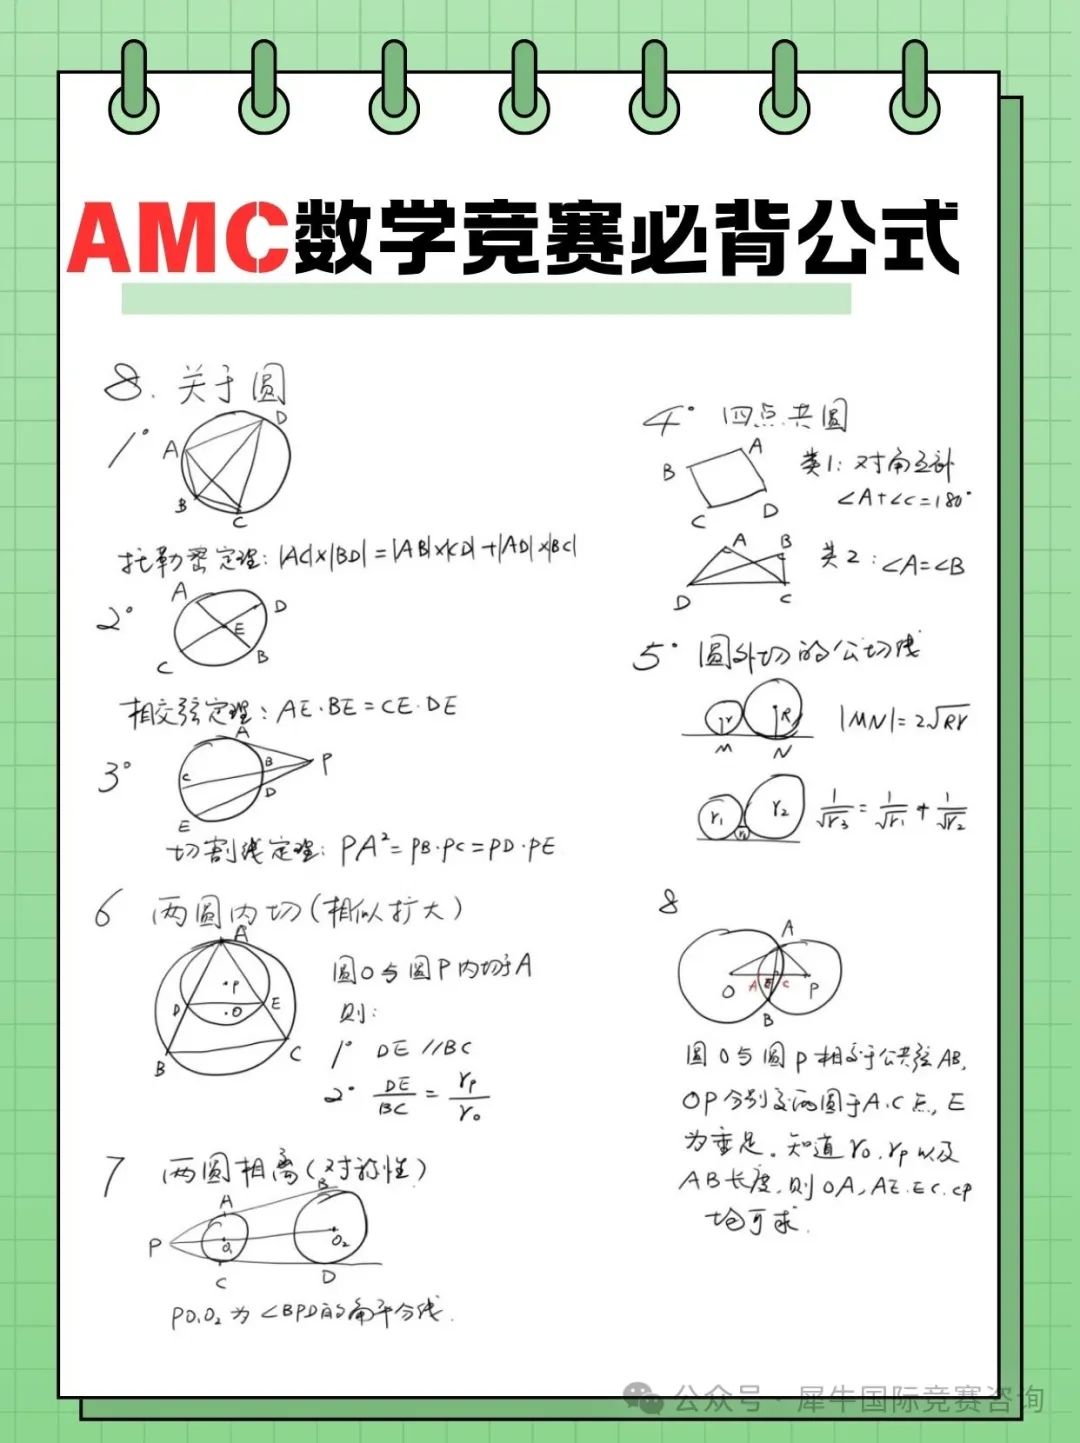 AMC数学竞赛必背公式
8. 关于圆
1°
A
D
B
C
托勒密定理: |AC|×|BD|=|AB|×|CD|+|AD|×|BC|
2°
A
D
E
C
B
相交弦定理: AE·BE=CE·DE
3°
A
B
P
C
D
E
切割线定理: PA²=PB·PC=PD·PE
4° 四点共圆
A
B
C
D
类1: 对角互补
∠A+∠C=180°
A
B
D
C
类2: ∠A=∠B
5° 圆外切的公切线
r
R
M
N
|MN|=2√Rr
r₁
r₂
r₃
1/√r₃=1/√r₁+1/√r₂
6 两圆内切(相似扩大)
A
P
D
O
E
B
C
圆O与圆P内切于A
则:
1° DE//BC
2° DE/BC = rₚ/r₀
7 两圆相离(对称性)
A
B
P
O₁
O₂
C
D
PO₁O₂为∠BPD的角平分线.
8
A
O
A
E
C
P
B
圆O与圆P相交于公共弦AB,
OP分别交两圆于A.C点, E
为垂足。知道r₀.rₚ以及
AB长度,则OA,AE.EC.CP
均可求.
公众号·犀牛国际竞赛咨询